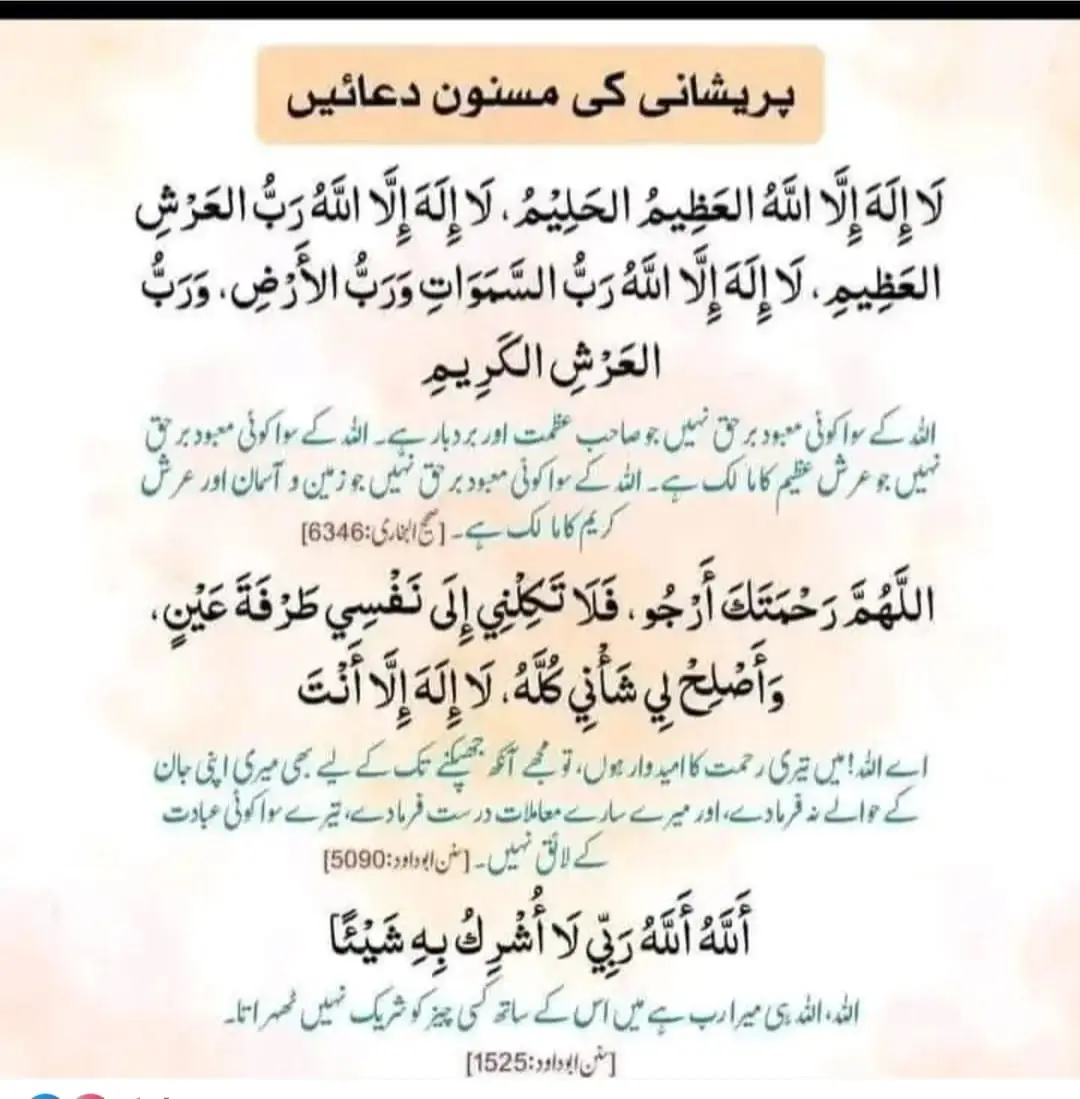 پریشانی کی مسنون دعائیں
لَا إِلَهَ إِلَّا اللَّهُ العَظِيمُ الحَلِيْمُ، لَا إِلَهَ إِلَّا اللَّهُ رَبُّ العَرْشِ
العَظِيمِ، لَا إِلَهَ إِلَّا اللَّهُ رَبُّ السَّمَوَاتِ وَرَبُّ الأَرْضِ، وَرَبُّ
العَرْشِ الكَرِيمِ
اللہ کے سوا کوئی معبود برحق نہیں جو صاحب عظمت اور بردبار ہے۔ اللہ کے سوا کوئی معبود برحق
نہیں جو عرش عظیم کا مالک ہے۔ اللہ کے سوا کوئی معبود برحق نہیں جو زمین و آسمان اور عرش
کریم کا مالک ہے۔ [صحیح البخاری:6346]
اللَّهُمَّ رَحْمَتَكَ أَرْجُو، فَلَا تَكِلْنِي إِلَى نَفْسِي طَرْفَةَ عَيْنٍ،
وَأَصْلِحْ لِي شَأْنِي كُلَّهُ، لَا إِلَهَ إِلَّا أَنْتَ
اے اللہ! میں تیری رحمت کا امیدوار ہوں، تو مجھے آنکھ جھپکنے تک کے لیے بھی میری اپنی جان
کے حوالے نہ فرما دے، اور میرے سارے معاملات درست فرما دے، تیرے سوا کوئی عبادت
کے لائق نہیں۔ [سنن ابوداود:5090]
أَللَّهُ أَللَّهُ رَبِّي لَا أُشْرِكُ بِهِ شَيْئًا
اللہ، اللہ ہی میرا رب ہے میں اس کے ساتھ کسی چیز کو شریک نہیں ٹھہراتا۔
[سنن ابوداود:1525]